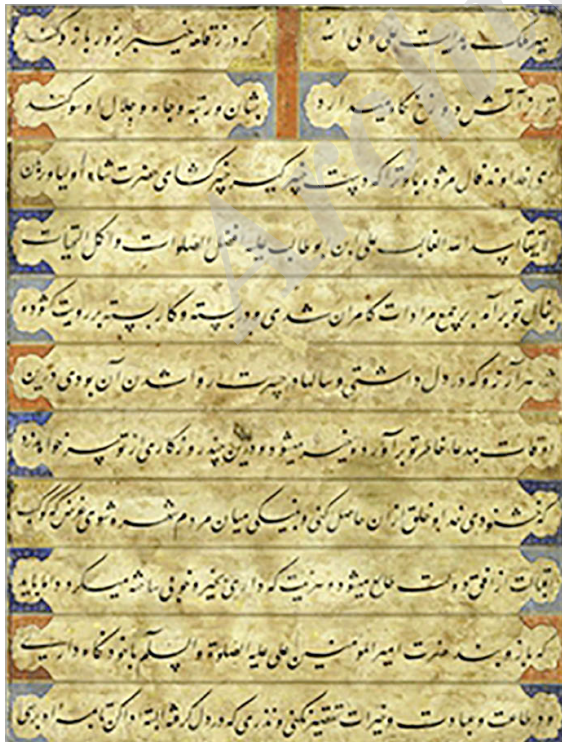 سپهر ملک هدایت علی ولی الله
که در ز قلعه خیبر بزور بازو کند
ترا ز آتش دوزخ نگاه میدارد
بشان و رتبه و جاه و جلال او سوگند
ای خداوند فال مژده باد ترا که دست خیبر گیر خیبر گشای حضرت شاه اولیا و برهان
الاتقیا اسد الله الغالب علی ابن ابو طالب علیه افضل الصلوات و اکمل التحیات
بفال تو برآمد بر جمیع مرادات کامران شدی و در بسته و کار بسته بر رویت گشوده
شد هر آرزو که در دل داشتی و سالها در حسرت روا شدن آن بودی درین
اوقات بمدعا خاطر تو برآورده و میسر میشود و درین چند روز کاری ز تو سر خواهد زد
که خشنودی خدا و خلق از آن حاصل کنی و بنیکی میان مردم شهره شوی غرض که کوکب
اقبالت از افق دولت طالع میشود و هر نیت که داری بخیر و خوبی ساخته میگردد اما باید
که بازوبند حضرت امیر المومنین علی علیه الصلوة والسلم با خود نگاه داری
و در طاعت و عبادت و خیرات تقصیر نکنی و نذری که در دل گرفته ابته ادا کن تا بمراد برسی